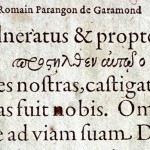 Romain Parangon de Garamond
lneratus & propte
προσῆλθεν αὐτῷ
es nostras, castigat
as fuit nobis. Om
e ad viam suam. D